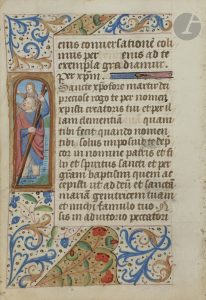 eius conuersatione coli
mus per eius ad te
exempla gradiamur.
Per xpm.
Sancte xpofore martir dei
preciose rogo te per nomen
xpisti creatoris tui et per il
lam clementiam quam
tibi fecit quando nomen
tibi solus imposuit te dep
cor in nomine patris et fi
lii et spiritus sancti et per
gram baptismi quem ac
cepisti ut ad deum et sanctam
mariam genitricem suam
et michi famulo tuo
sis in adiutorio peccatori